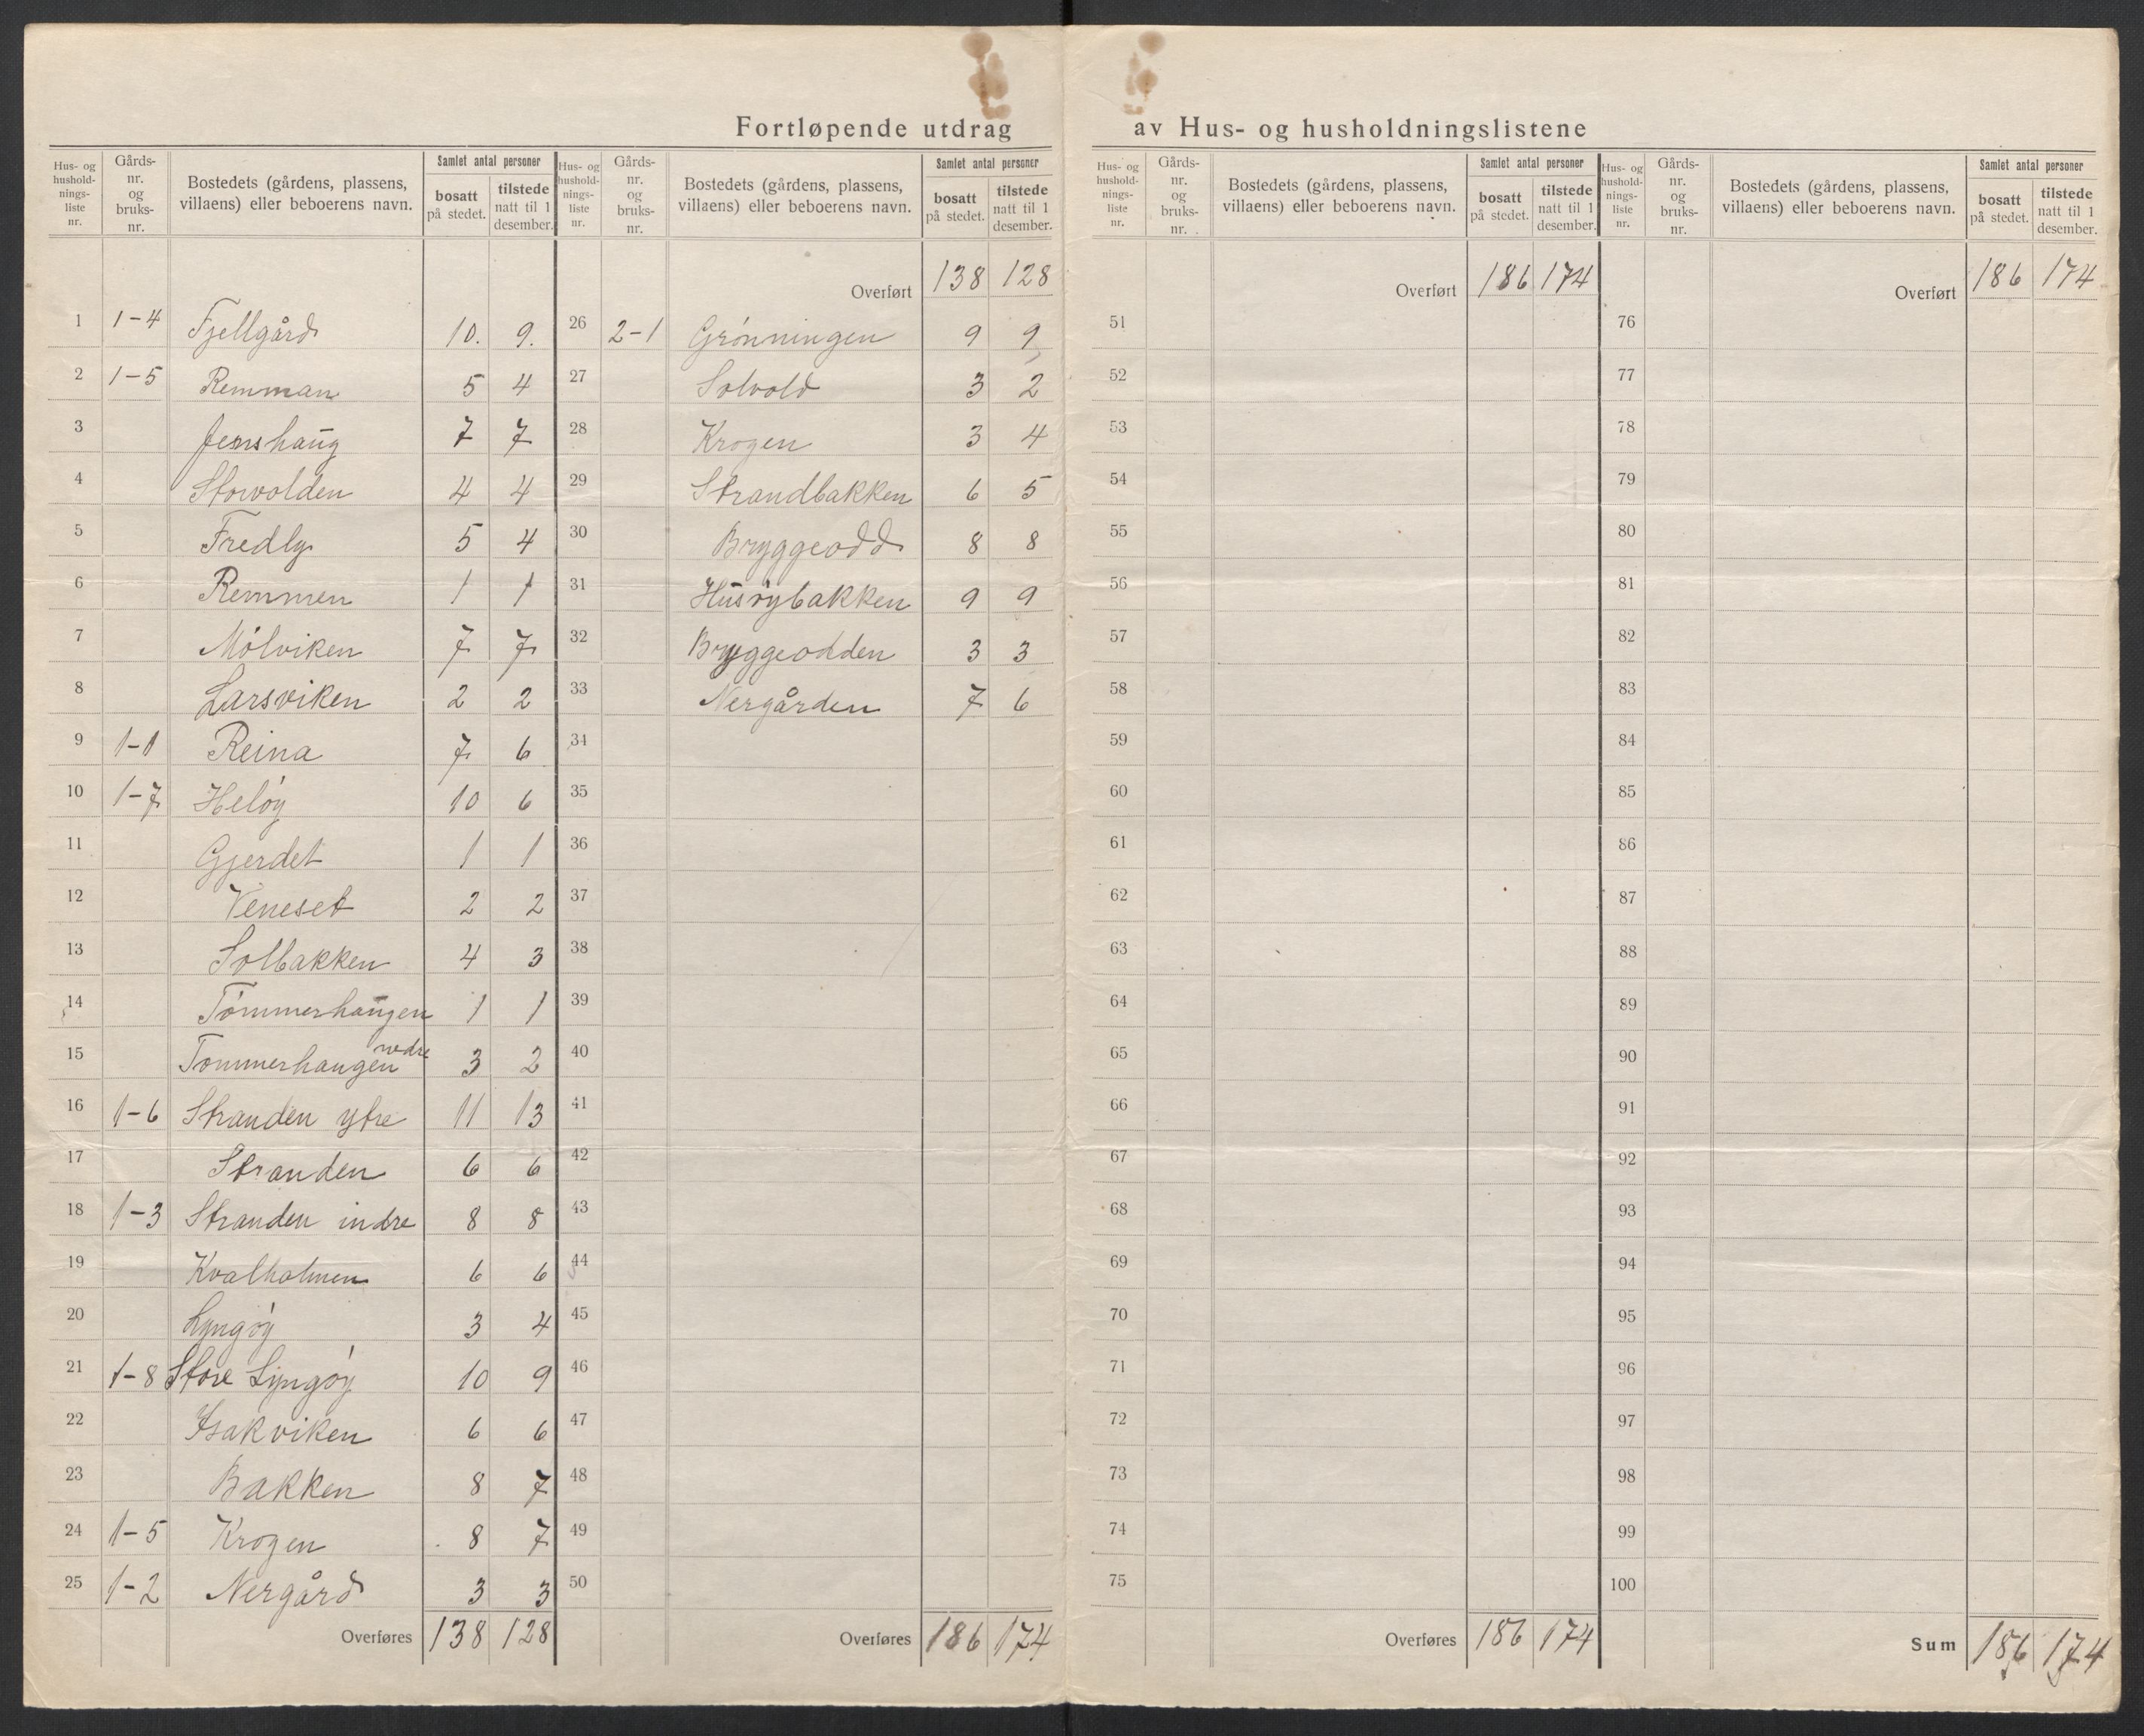 Fortløpende utdrag av Hus- og husholdningslistene
Hus- og hushold- nings- liste nr. | Gårds- nr. og bruks- nr. | Bostedets (gårdens, plassens, villaens) eller beboerens navn. | Samlet antal personer | bosatt på stedet. | tilstede natt til 1 desember.
1 1-4 Fjellgård 10. 9.
2 1-5 Remman 5 4
3 Jenshaug 7 7
4 Storvolden 4 4
5 Fredly 5 4
6 Remmen 1 1
7 Mólviken 7 7
8 Larsviken 2 2
9 1-1 Reina 7 6
10 1-7 Helóy 10 6
11 Gjerdet 1 1
12 Veneset 2 2
13 Solbakken 4 3
14 Tómmerhaugen 1 1
15 Tommerhaugen nedre 3 2
16 1-6 Stranden ytre 11 13
17 Stranden 6 6
18 1-3 Stranden indre 8 8
19 Kvalholmen 6 6
20 Lyngóy 3 4
21 1-8 Store Lyngóy 10 9
22 Isakviken 6 6
23 Bakken 8 7
24 1-5 Krogen 8 7
25 1-2 Nergård 3 3
Overføres 138 128
Hus- og hushold- nings- liste nr. | Gårds- nr. og bruks- nr. | Bostedets (gårdens, plassens, villaens) eller beboerens navn. | Samlet antal personer | bosatt på stedet. | tilstede natt til 1 desember.
Overført 138 128
26 2-1 Grónningen 9 9
27 Solvold 3 2
28 Krogen 3 4
29 Strandbakken 6 5
30 Bryggeodd 8 8
31 Husóybakken 9 9
32 Bryggeodden 3 3
33 Nergården 7 6
34
35
36
37
38
39
40
41
42
43
44
45
46
47
48
49
50
Overføres 186 174
Hus- og hushold- nings- liste nr. | Gårds- nr. og bruks- nr. | Bostedets (gårdens, plassens, villaens) eller beboerens navn. | Samlet antal personer | bosatt på stedet. | tilstede natt til 1 desember.
Overført 186 174
51
52
53
54
55
56
57
58
59
60
61
62
63
64
65
66
67
68
69
70
71
72
73
74
75
Overføres 186 174
Hus- og hushold- nings- liste nr. | Gårds- nr. og bruks- nr. | Bostedets (gårdens, plassens, villaens) eller beboerens navn. | Samlet antal personer | bosatt på stedet. | tilstede natt til 1 desember.
Overført 186 174
76
77
78
79
80
81
82
83
84
85
86
87
88
89
90
91
92
93
94
95
96
97
98
99
100
Sum 186 174